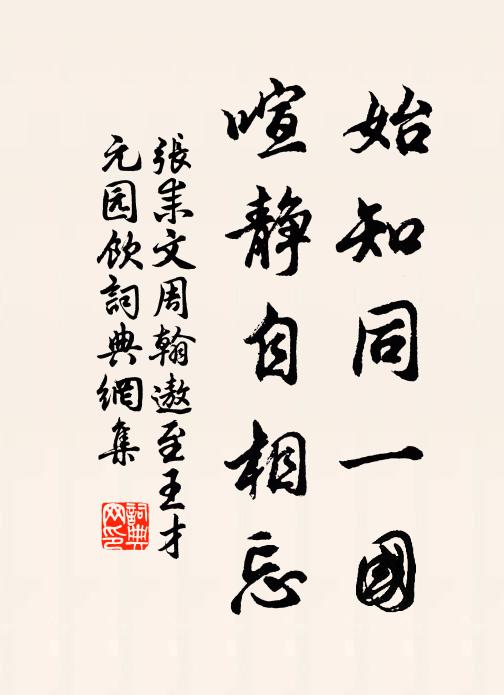 始知同一國
喧静自相忘
張耒文周翰遨至王才
元园飲詞典網集
詞典
网印